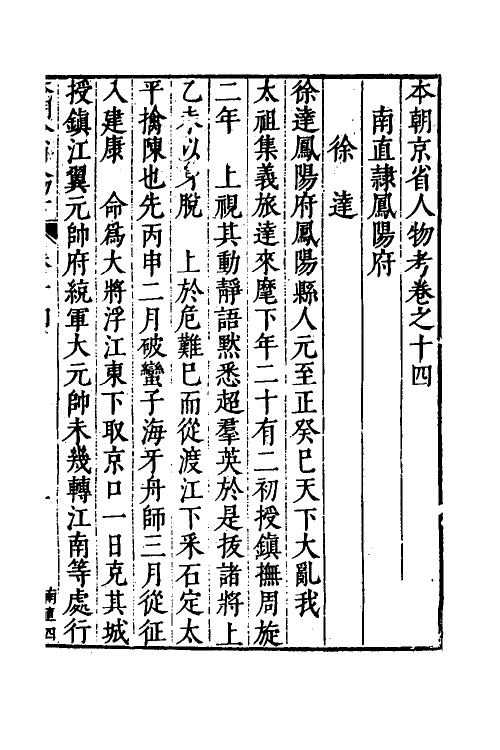 本朝京省人物考卷之十四
南直隷鳳陽府
徐達
徐達鳳陽府鳳陽縣人元至正癸巳天下大亂我
太祖集義旅達來麾下年二十有二初授鎮撫周旋
二年　上視其動靜語默悉超羣英於是拔諸將上
乙未以身脫　上於危難已而從渡江下采石定太
平擒陳也先丙申二月破蠻子海牙舟師三月從征
入建康　命爲大將浮江東下取京口一日克其城
授鎮江翼元帥府統軍大元帥未幾轉江南等處行
卷十四
一
南直四